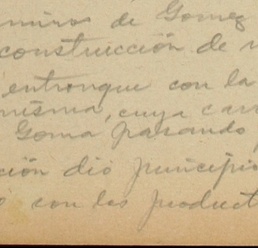 miro de Gomez
construcción de
entronque con la
misma, cuya car
Goma pasando
ción dió principio
con los product